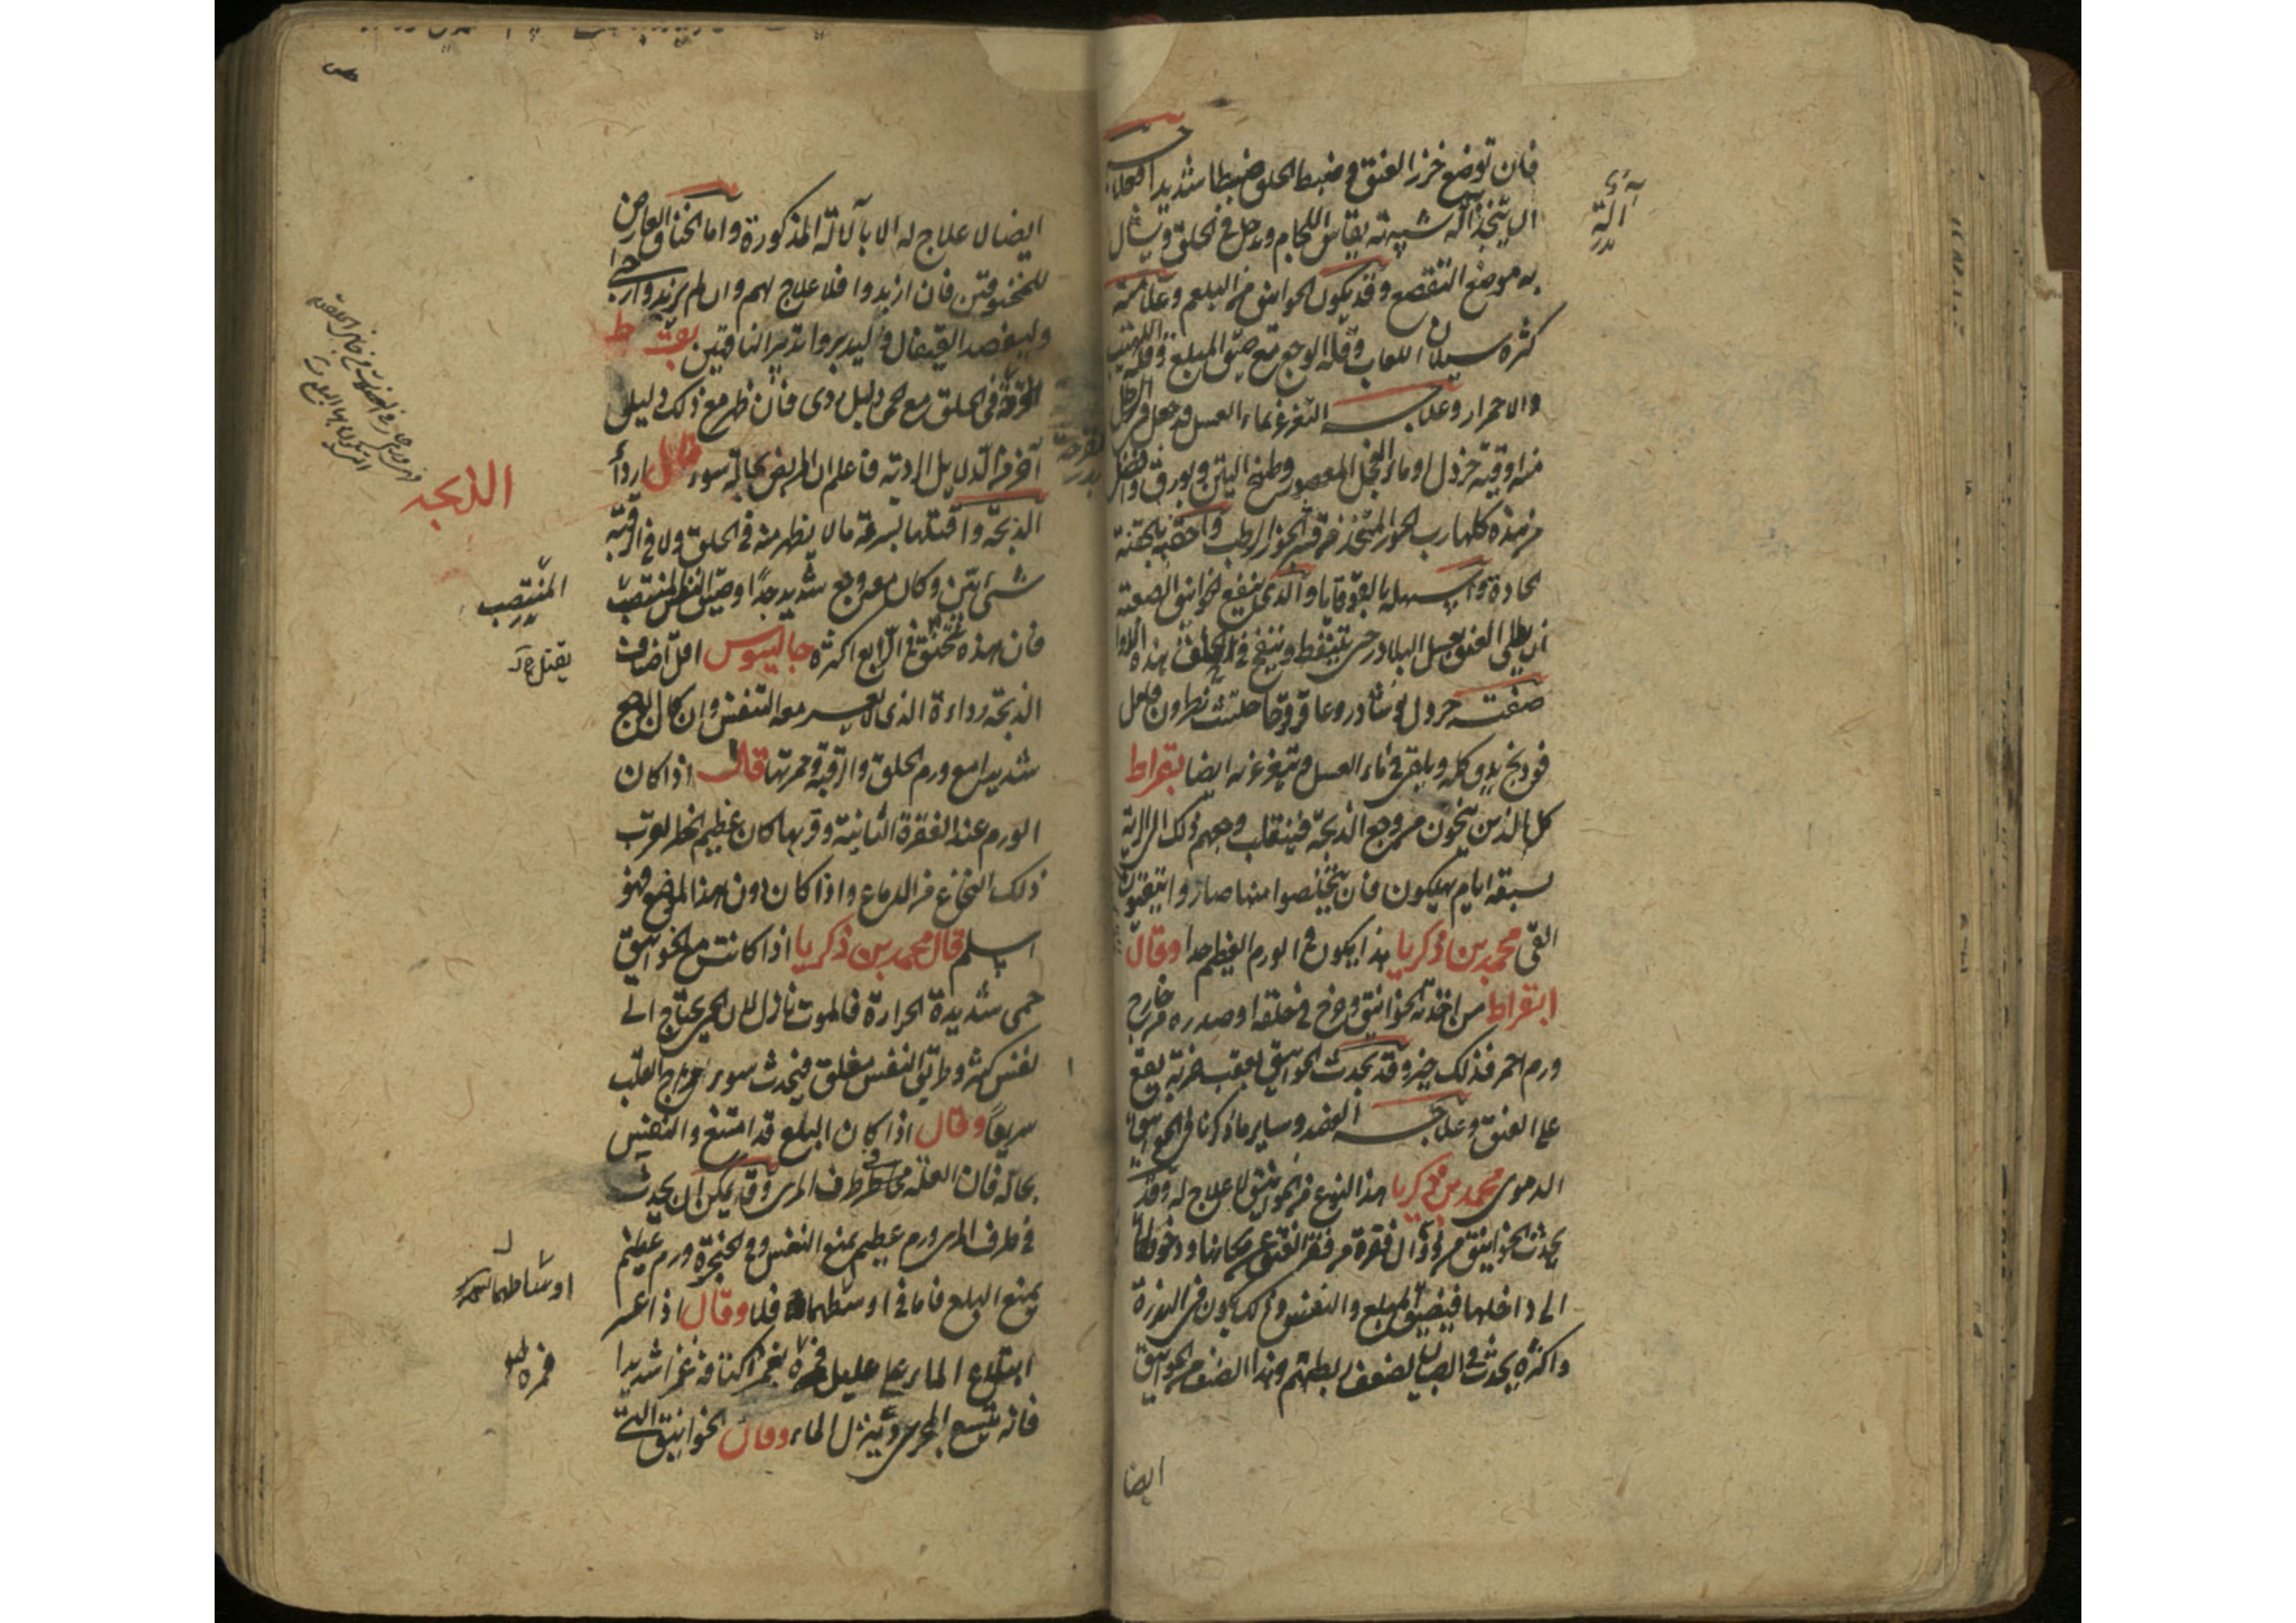 فان توضع خرز العنق في ضبط الحلق ضبطا شديدا فعلاجه
ان يتخذ آلة شبيهة بفاس اللجام ويدخل في الحلق ويشال
آلة
به موضع التقصع وقد يكون الخوانيق من البلغم وعلامته
كثرة سيلان اللعاب وقلة الوجع مع ضيق المبلع وقلة اللهيب
والاحمرار وعلاجه التغرغر بماء العسل
منه اوقية خردل او ماء الفجل المعصور وطبخ التين وبورق وافضل
من هذه كلها رب الجوز المتخذ من قشر الجوز الرطب واحقنه بحقنة
حادة واسهله بالقوقايا والذي ينفع الخوانيق الصعبة
ان يطلى العنق بعسل البلادر حتى يتنفط وينفخ في الحلق هذه الدوا
صفته خردل نوشادر وعاقرقرحا حلتيت نطرون فلفل
فودنج يدق كله ويلقى في ماء العسل ويتغرغر به ايضا بقراط
كل الذين ينجون من وجع الذبحة فينقلب وجعهم ذلك الى الرية
سبعة ايام يهلكون فان تخلصوا منها صاروا متقيحين
القى محمد بن زكريا هذا يكون في الورم العظيم جدا وقال
ابقراط من اخذته الخوانيق وخرج في حلقه او صدره من خارج
ورم احمر فذلك خير وقد يحدث الخوانيق بعقب ضربة يقع
على العنق وعلاجه الفصد وساير ما ذكرنا في الخوانيق
الدموى محمد بن زكريا هذا النوع من الخوانيق لا علاج له وقد
يحدث الخوانيق من زوال فقرة من فقر العنق عن مكانها ودخولها
الى داخلها فيضيق المبلع والنفس وذلك يكون في الندرة
واكثره يحدث في الصبيان لضعف رباطهم وهذا الصنف من الخوانيق
ايضا
ايضا لا علاج له الا بآلاته المذكورة واما الخناق العارض
للمخنوقين فان ازبدوا فلا علاج لهم وان لم يزبدوا
وليفصد القيفال وليدبروا تدبير الناقهين بقراط
الحرقة في الحلق مع الحمى دليل ردى فان ظهر مع ذلك دليل
آخر من الدلايل الردية فاعلم ان المريض بحالة سوء قال اردأ
الذبحة
الذبحة واقتلها بسرعة ما لا يظهر منه في الحلق ولا في الرقبة
شئ بين وكان معه وجع شديد جدا وضيق النفس المنتصب
المنتصب
فان هذه تخنق في الرابع اكثره جالينوس اقل اصناف
يقتل
الذبحة رداءة الذى لا يعسر معه التنفس وان كان الوجع
شديدا مع ورم الحلق والرقبة وحمرتها قال اذا كان
الورم عند الفقرة الثانية وقربها كان عظيم الخطر لقرب
ذلك النخاع من الدماغ واذا كان دون هذا الموضع فهو
اسلم قال محمد بن زكريا اذا كانت مع الخوانيق
حمى شديدة الحرارة فالموت نازل لان الحمى يحتاج الى
نفس كثير وطريق النفس مغلق فيحدث سوء مزاج القلب
سريعا وقال اذا كان البلع قد امتنع والنفس
بحاله فان العلة في طرف المرى وقد يمكن ان يحدث
في طرف المرى ورم عظيم يمنع النفس وفي الحنجرة ورم عظيم
يمنع البلع فاما في اوساطهما فلا وقال اذا عسر
اوساطهما
ابتلاع الماء على عليل فمره بغمز اكتافه غمزا شديدا
فمره
فانه يتسع المجرى وينزل الماء وقال الخوانيق التى